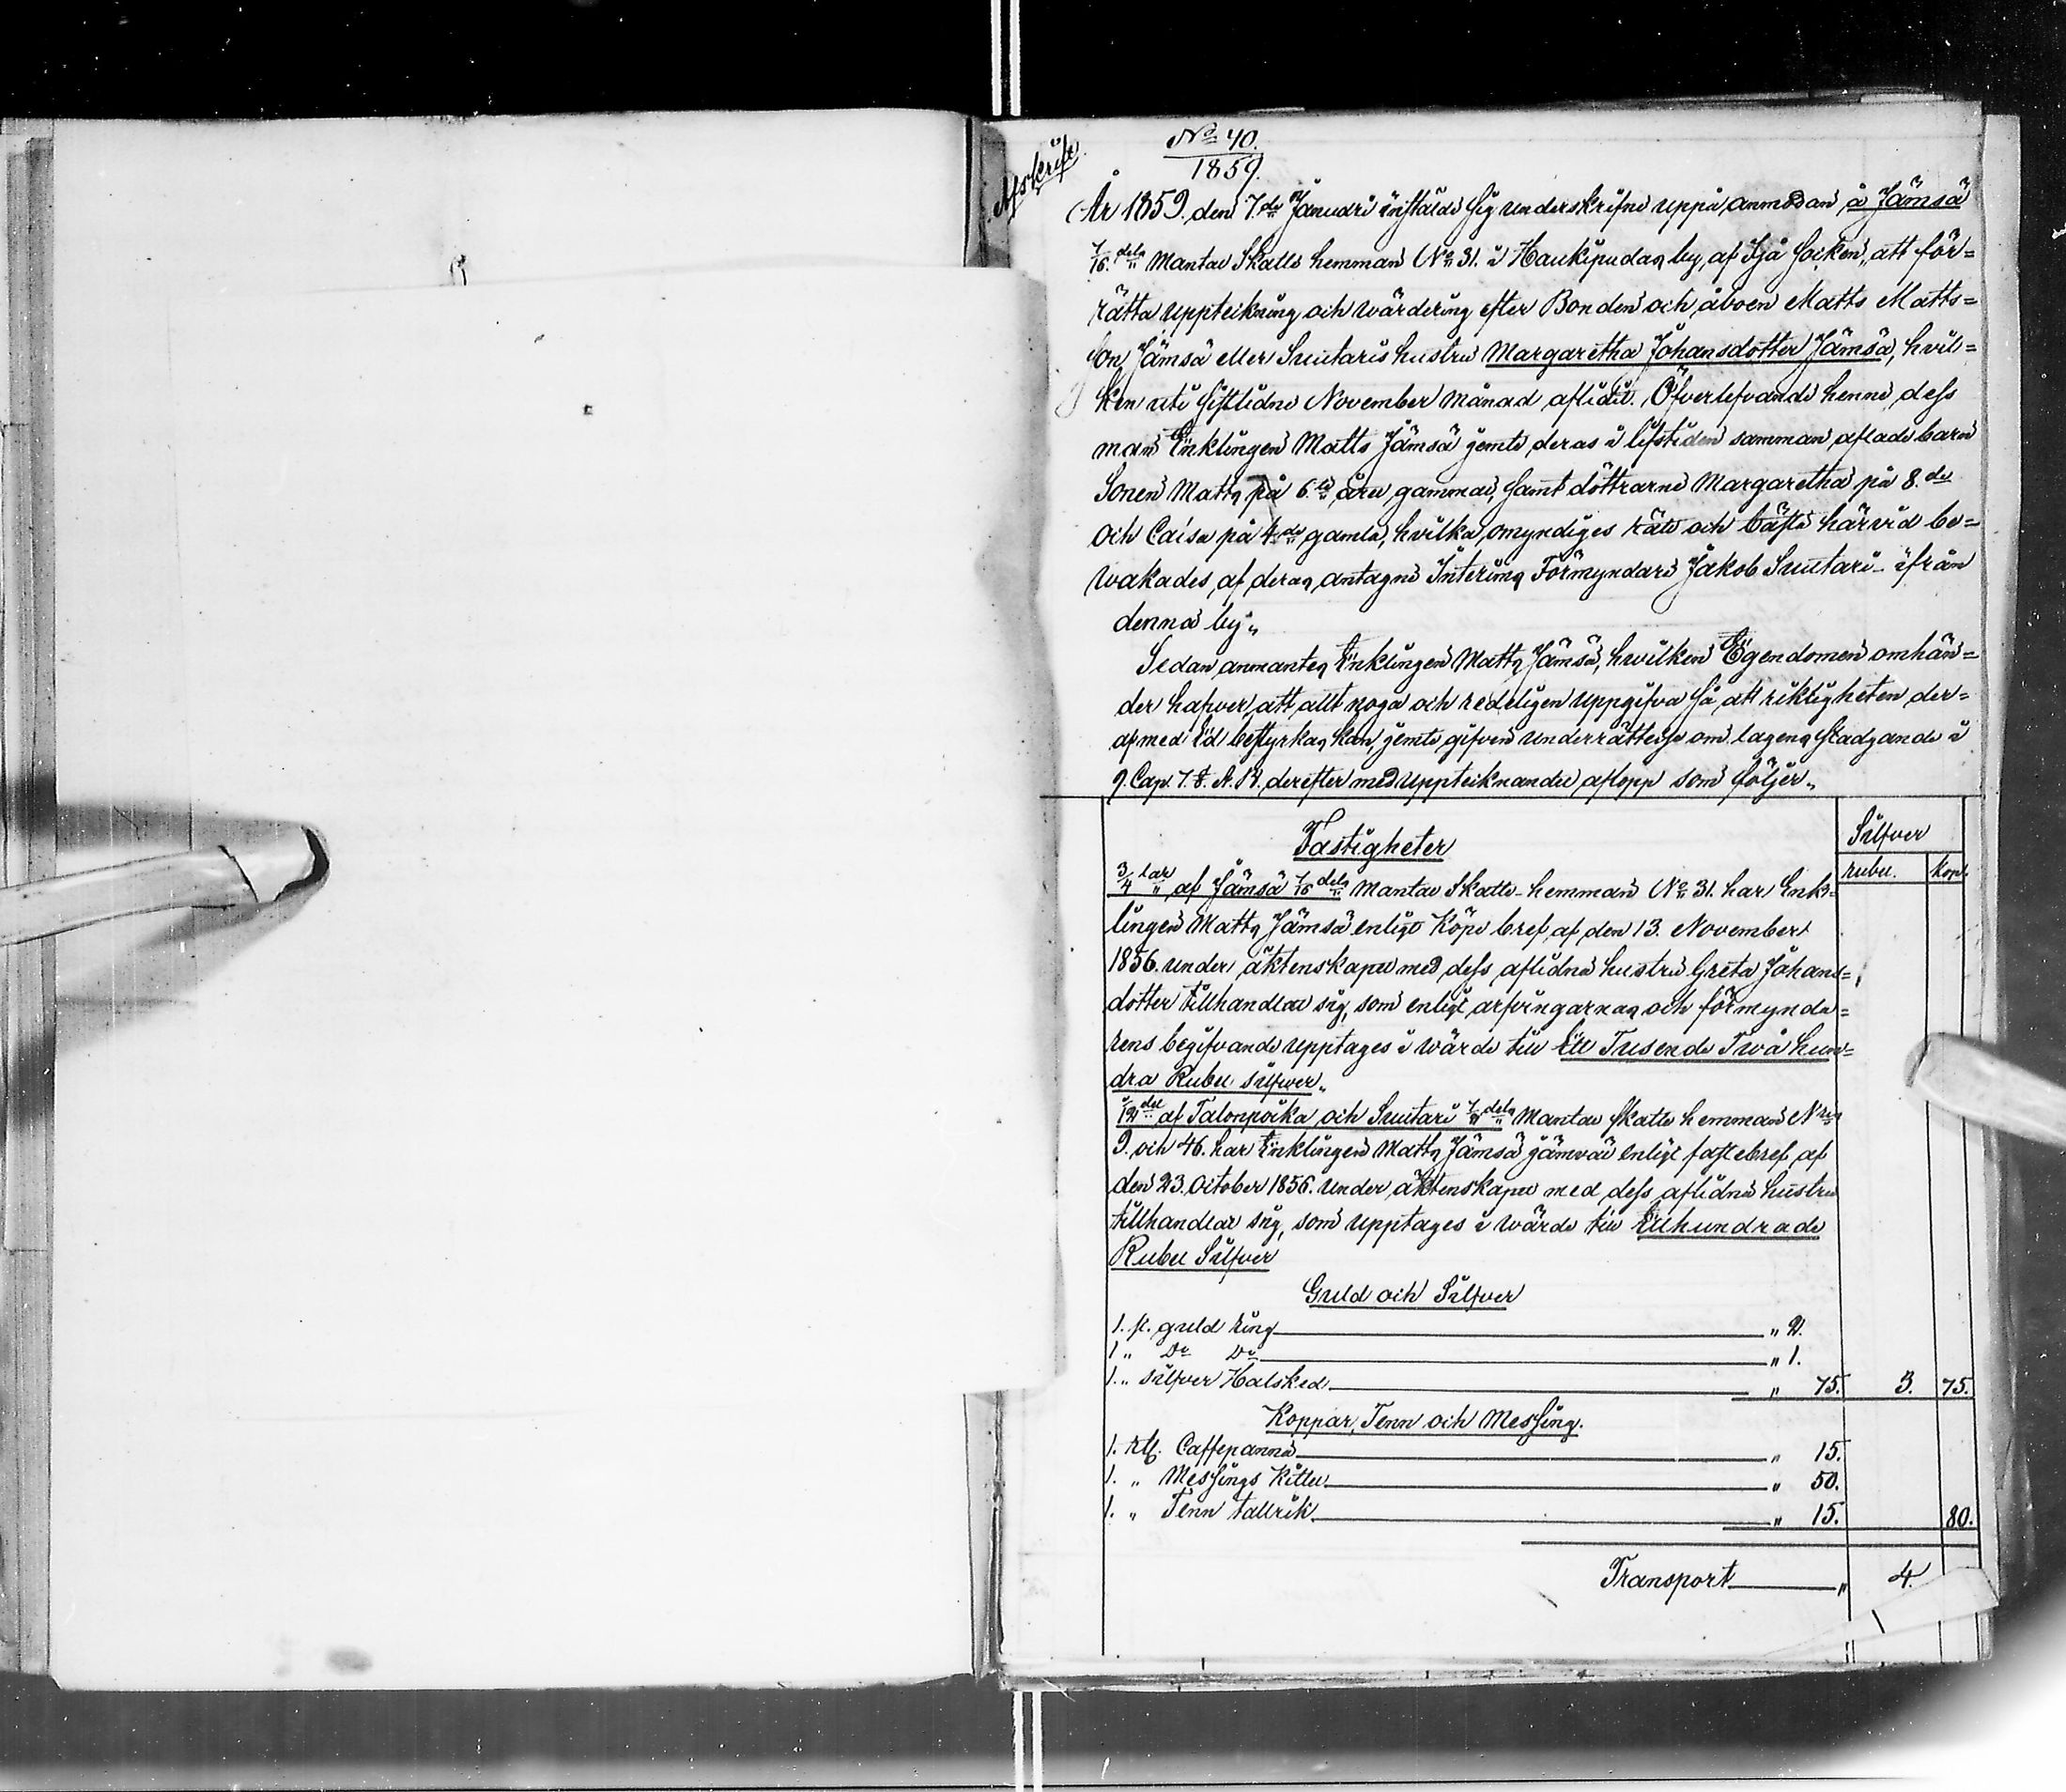 Afskrift
No 40.
1859.
År 1859. den 7de Januari instälde sig underskrifne uppå anmodan å Jämsä
7/16.dels Mantal Skatte hemman No 31. i Haukipudas by, af Ijå Socken, att för=
rätta uppteikning och wärdering efter Bonden och åboen Matts Matts=
son Jämsä eller Suutaris hustru Margaretha Johansdotter Jämsä, hvil=
ken uti sistlidne November månad aflidit. Öfverlefvande henne, dess
man Enklingen Matts Jämsä jemte deras i lifstiden samman aflade barn
Sonen Matts på 6te året gammal, samt döttrarne Margaretha på 8.de
och Caisa på 4.de gamla, hvilka omyndiges rätt och bästa härvid be=
wakades, af deras antagne Interims Förmyndare Jakob Suutari ifrån
denna by.
Sedan anmantes Enklingen Matts Jämsä, hwilken Egendomen omhän=
der hafver, att allt noga och redeligen uppgifva så, att riktigheten der=
af med Ed bestyrkas kan, jemte gifven underrättelse om lagens stadgande i
9. Cap. 7. §. Ä. B. derefter med uppteiknandet aflopp som följer.
Fastigheter
Silfver
rubel. Kop.
3/4 lar af Jämsä 7/16 dels Mantal Skatte hemman No 31. har Enk=
lingen Matts Jämsä enligt Köpe bref af den 13. November
1856. under äktenskapet med dess aflidna hustru Greta Johans=
dotter tillhandlat sig, som enligt arfvingarnas och förmynda=
rens begifvande upptages i wärde till Ett Tusende Twå hun=
dra Rubel silfwer.
1/12 del af Talonpoika och Suutari dels Mantal skatte hemman Nris
9. och 46. har Enklingen Matts Jämsä jämväl enligt fastebref af
den 23. October 1856. under äktenskapet med dess aflidna hustru
tillhandlat sig, som upptages i wärde till Ett hundrade
Rubel Silfver
Guld och Silfver
1. st. guld ring " 2.
1 " Do Do " 1.
1. " silfver Halsked " 75. 3. 75.
Koppar, Tenn och Messing.
1. st. Caffepanna " 15.
1. " Messings Kittel " 50.
1. " Tenn tallrik " 15. 80.
Transport " 4.